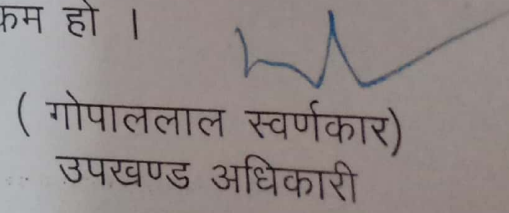 कम हो ।
( गोपाललाल स्वर्णकार)
उपखण्ड अधिकारी